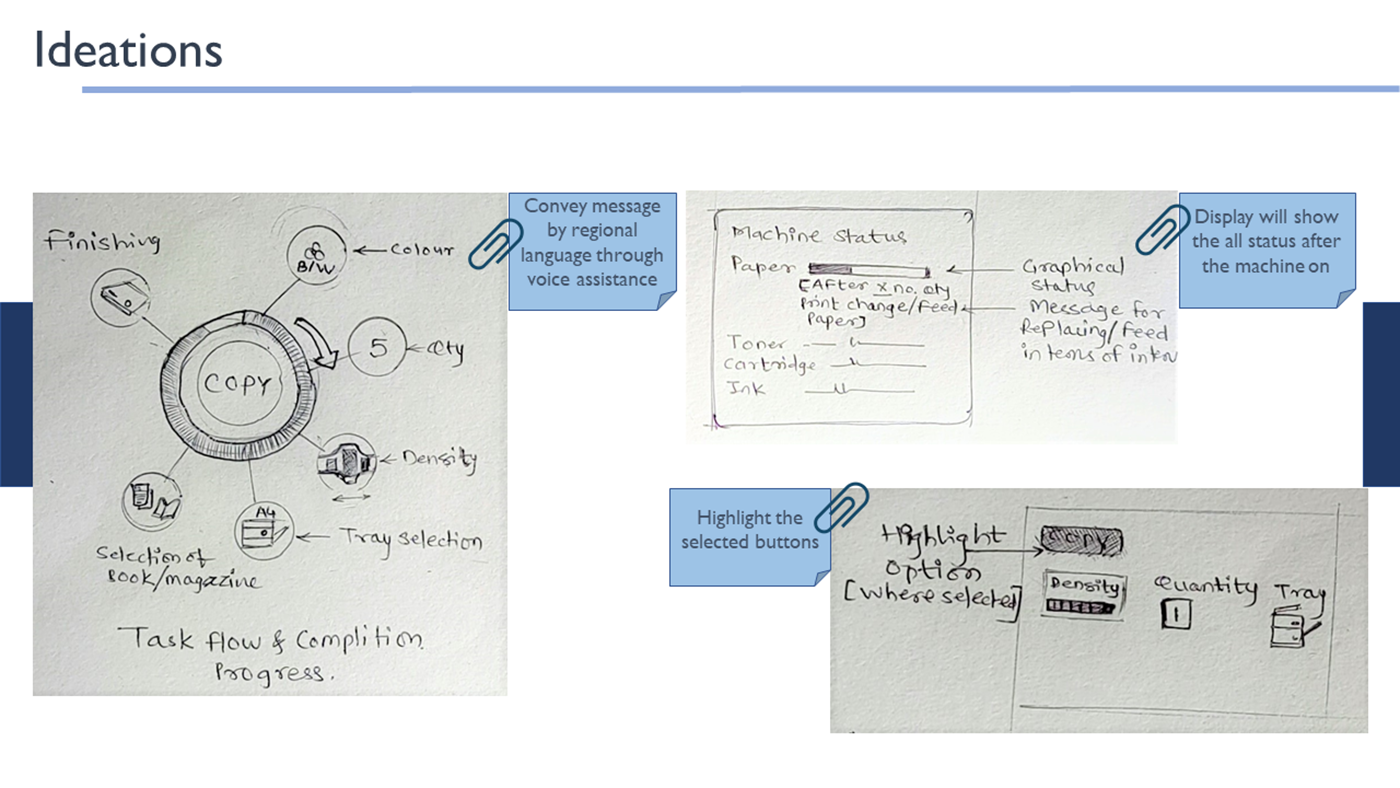 Ideations
Finishing
B/W
Colour
5
Qty
COPY
Density
A4
Tray selection
Selection of
Book/magazine
Task flow & Complition
Progress.
Convey message
by regional
language through
voice assistance
Machine status
Paper
[After x no. qty
Print change/feed
Paper]
Toner
Cartridge
Ink
Graphical
status
Message for
Replacing/feed
in terms of
Display will show
the all status after
the machine on
Highlight the
selected buttons
Highlight
option
[where selected]
Copy
Density
Quantity
1
Tray